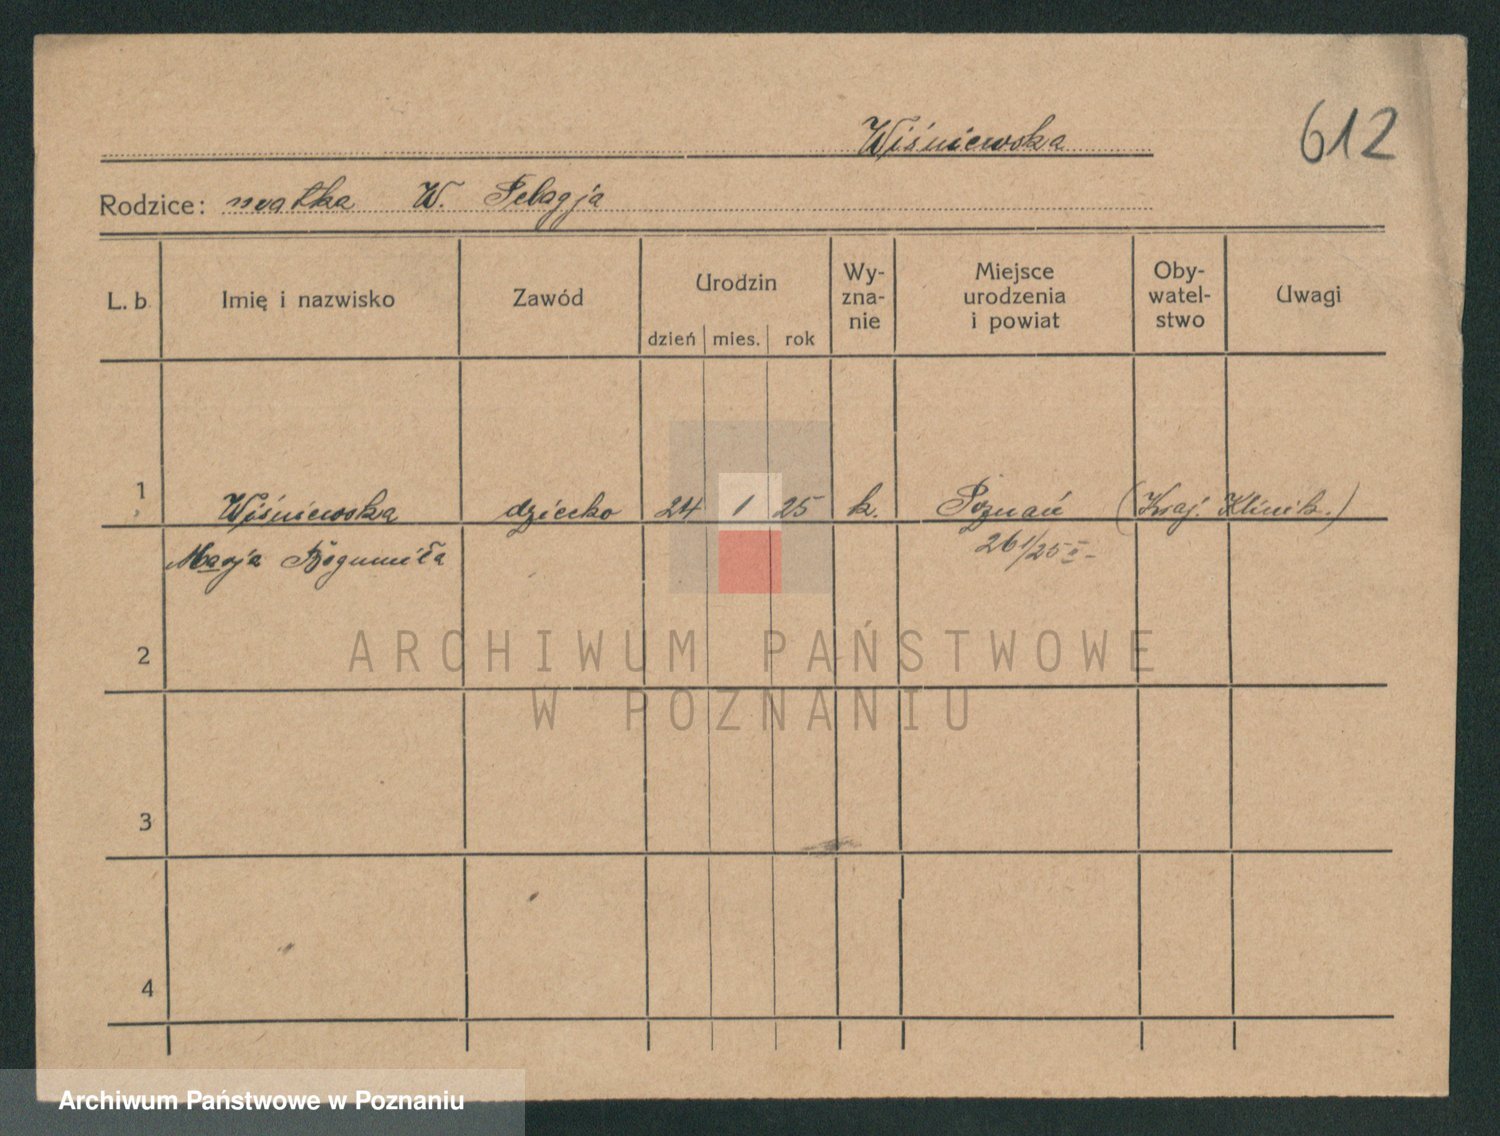 Wiśniewska
612
Rodzice: matka W. Pelagja
L. b.
Imię i nazwisko
Zawód
Urodzin
dzień mies. rok
Wy-
zna-
nie
Miejsce
urodzenia
i powiat
Oby-
watel-
stwo
Uwagi
1 Wiśniewska dziecko 24 1 25 k. Poznań (Kraj. Klinik.)
Marja Bogumiła 26 1/25
2
ARCHIWUM PAŃSTWOWE
W POZNANIU
3
4
Archiwum Państwowe w Poznaniu